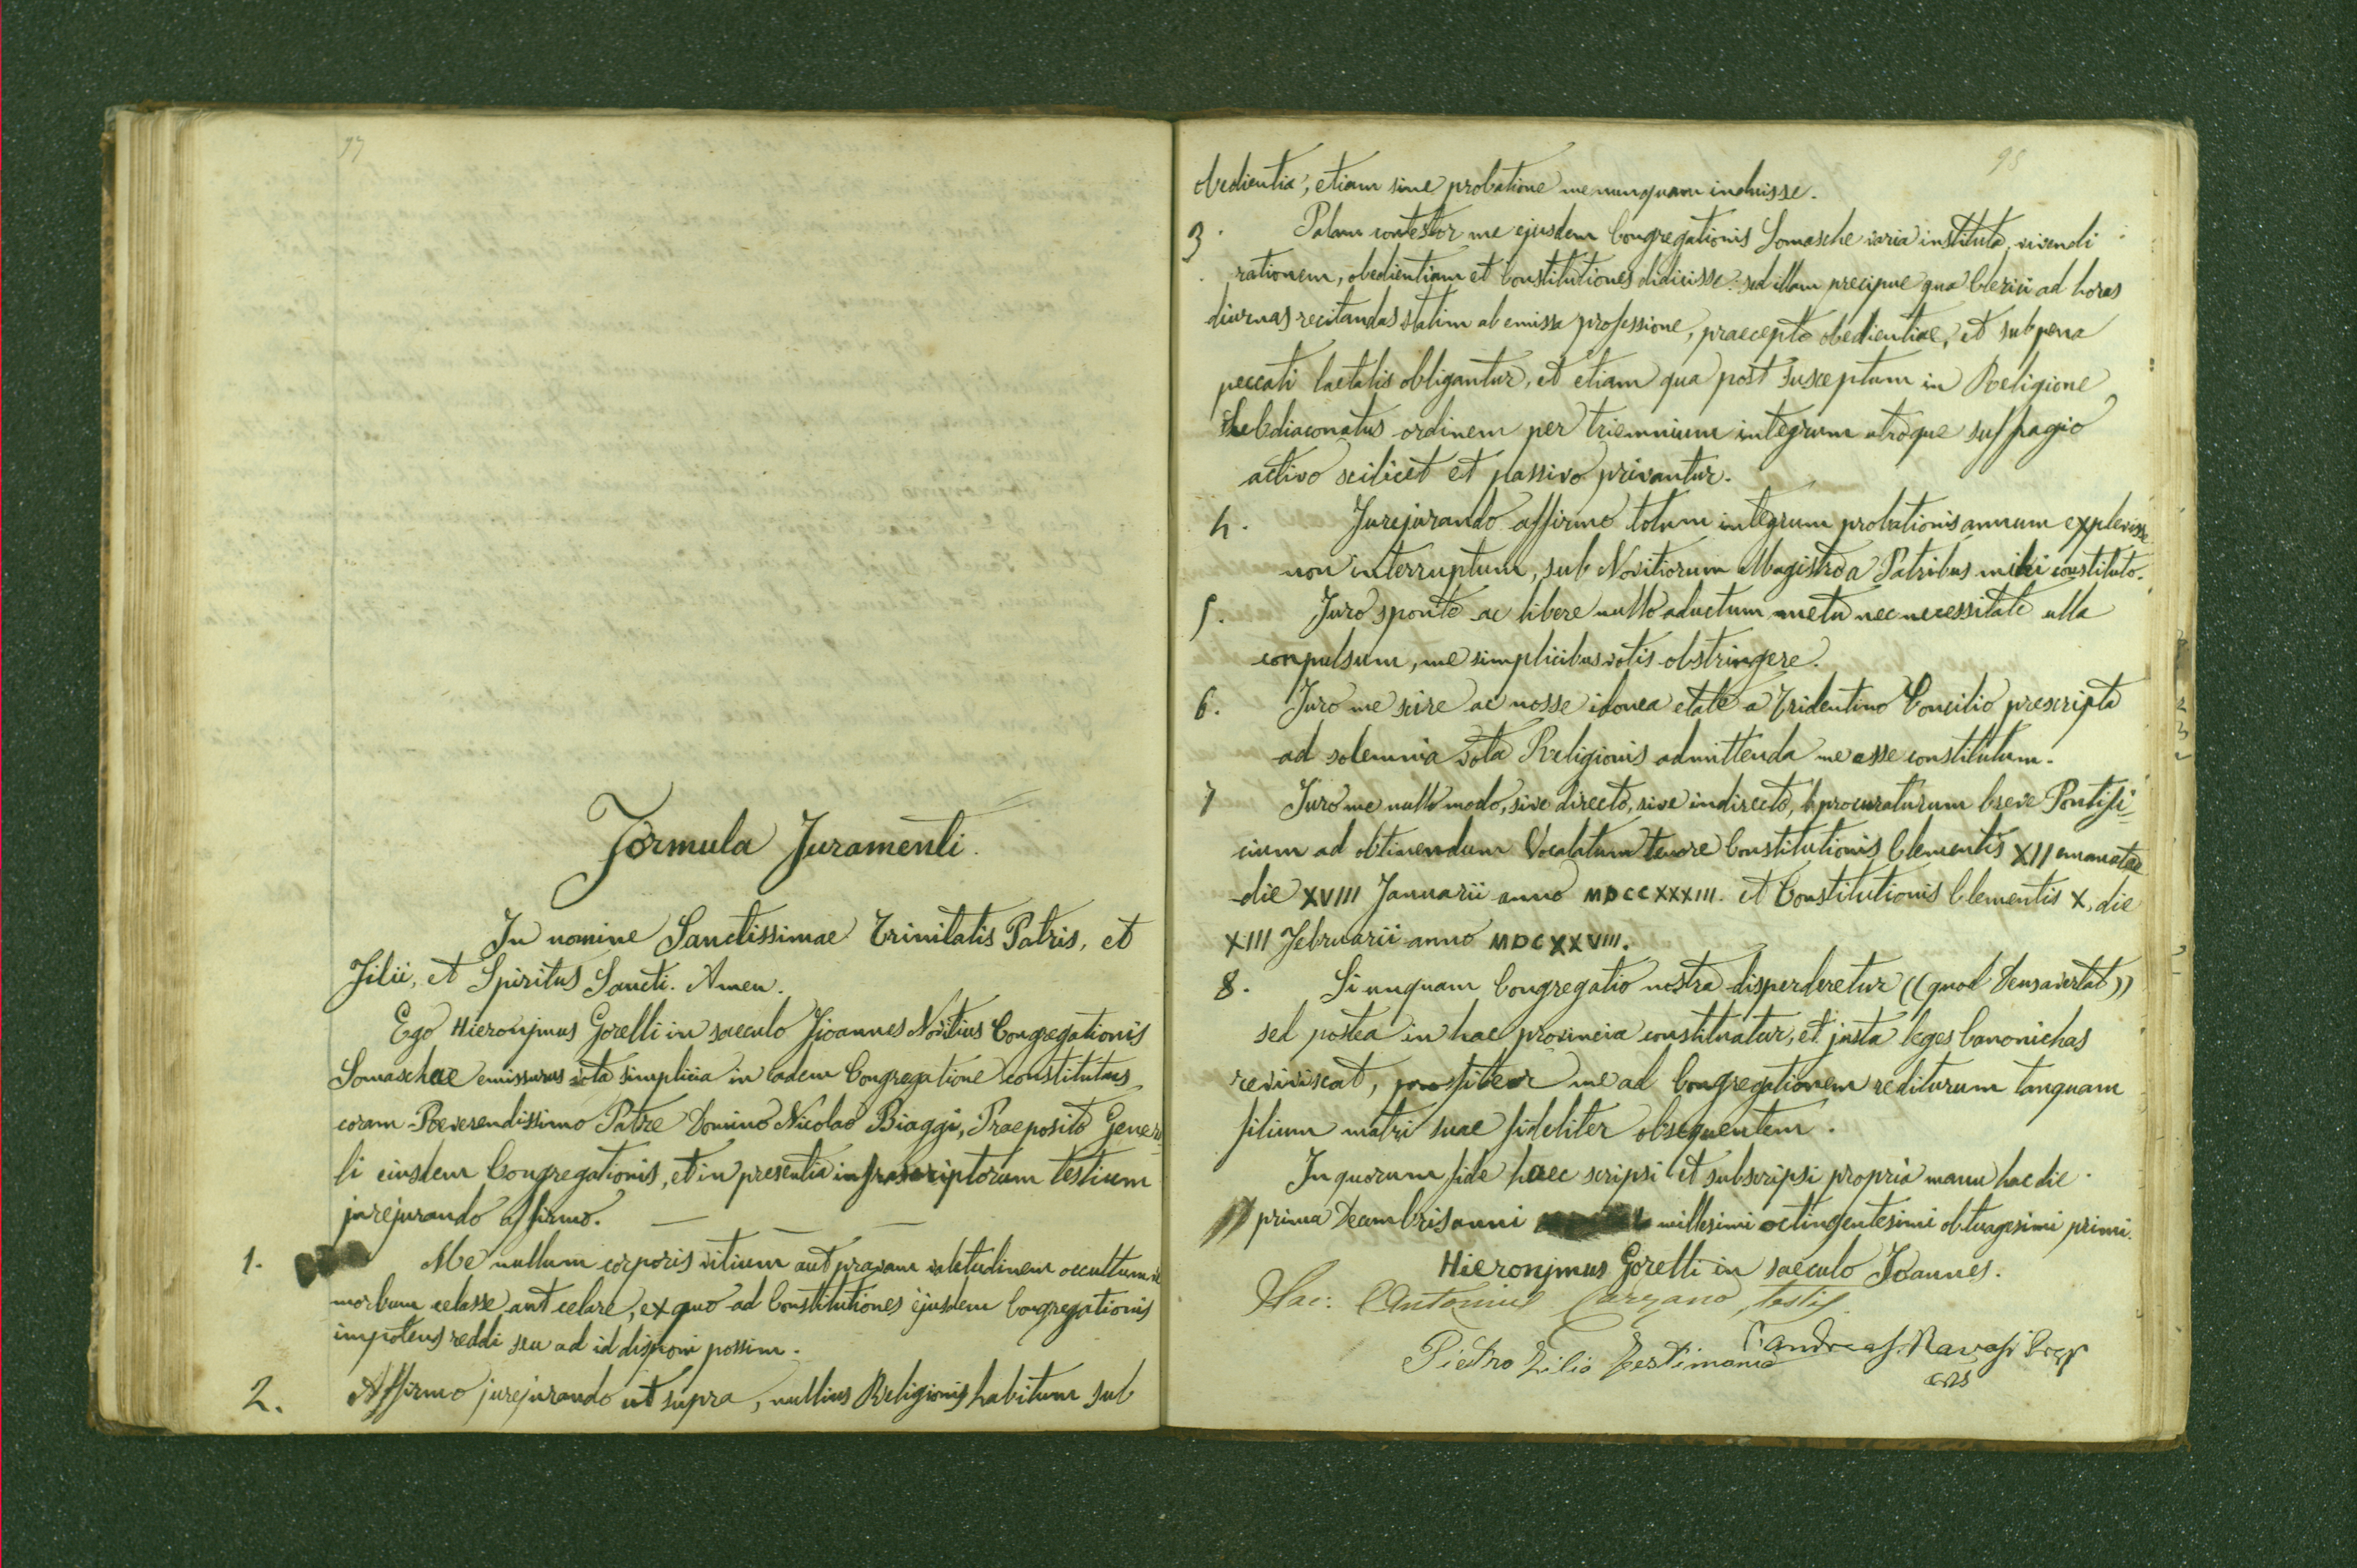 97
Formula Juramenti.
In nomine Sanctissimae Trinitatis Patris, et
Filii, et Spiritus Sancti. Amen.
Ego Hieronjmus Gorelli in saeculo Joannes Novitius Congregationis
Somaschae emissurus vota simplicia in eadem Congregatione constitutus
coram Reverendissimo Patre Domino Nicolao Biaggi, Praeposito Genera-
li eiusdem Congregationis, et in presentia infrascriptorum testium
jurejurando affirmo.
1. Me nullum corporis vitium aut pravam valetudinem occultum ve
morbum celasse aut celare, ex quo ad Constitutiones ejusdem Congregationis
impotens reddi seu ad id disponi possim.
2. Affirmo jurejurando ut supra, nullius Religionis habitum sub
98
obedientia, etiam sine probatione me nunquam induisse.
3. Palam contestor me ejusdem Congregationis Somasche varia instituta, vivendi
rationem, obedientiam et Constitutiones didicisse: sed illam precipue qua Clerici ad horas
diurnas recitandas statim ab emissa professione, praecepto obedientiae, et sub pena
peccati laetalis obligantur, et etiam qua post susceptum in Religione
Subdiaconatus ordinem per triennium integrum utroque suffragio
activo scilicet et passivo privantur.
4. Jurejurando affirmo totum integrum probationis annum explevisse
non interruptum, sub Novitiorum Magistro a Patribus mihi constituto.
5. Juro sponte ac libere nullo aductum metu nec necessitate ulla
conpulsum, me simplicibus votis obstringere.
6. Juro me scire ac nosse idonea etate a Tridentino Concilio prescripta
ad solemnia vota Religionis admittenda me esse constitutum.
7 Juro me nullo modo, sive directo, sive indirecto, procuraturum breve Pontifi-
cium ad obtinendum Vocalatum tenore Constitutionis Clementis XII emanatae
die XVIII Januarii anno MDCCXXXIII. et Constitutionis Clementis X, die
XIII Februarii anno MDCXXVIII.
8. Si unquam Congregatio nostra disperderetur ((quod Deus avertat))
sed postea in hac provincia constituatur, et justa leges Canonichas
reviviscat, profiteor me ad Congregationem rediturum tanquam
filium matri suae fideliter obsequentem.
In quorum fide haec scripsi et subscripsi propria manu hac die
prima Decembris anni millesimi octingentesimi obtuagesimi primi.
Hieronjmus Gorelli in saeculo Joannes.
Antonius Carzano testis.
Pietro Zilio Testimonio
Andreas Ravasi
CRS